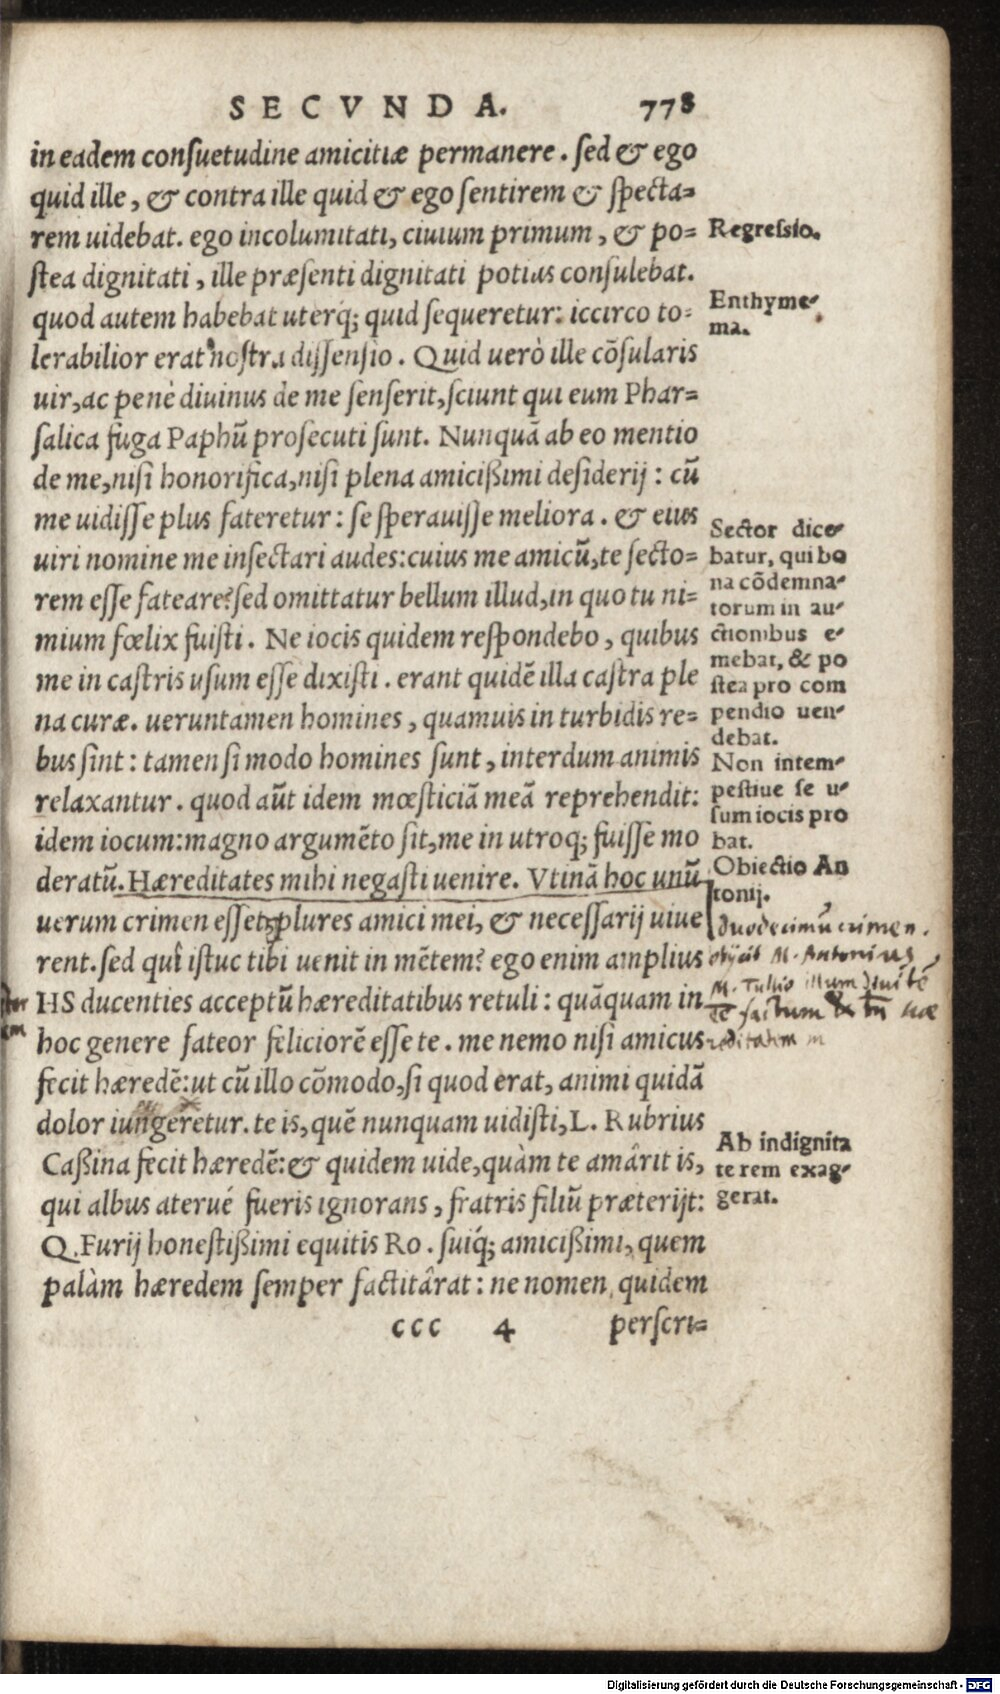 SECVNDA. 778
in eadem consuetudine amicitiæ permanere. sed & ego
quid ille, & contra ille quid & ego sentirem & specta=
rem uidebat. ego incolumitati, ciuium primum, & po=
stea dignitati, ille præsenti dignitati potius consulebat.
quod autem habebat uterq; quid sequeretur: iccirco to=
lerabilior erat nostra dissensio. Quid uerò ille cõsularis
uir, ac penè diuinus de me senserit, sciunt qui eum Phar=
salica fuga Paphũ prosecuti sunt. Nunquã ab eo mentio
de me, nisi honorifica, nisi plena amicißimi desiderij: cũ
me uidisse plus fateretur: se sperauisse meliora. & eius
uiri nomine me insectari audes: cuius me amicũ, te secto=
rem esse fateare? sed omittatur bellum illud, in quo tu ni=
mium fœlix fuisti. Ne iocis quidem respondebo, quibus
me in castris usum esse dixisti. erant quidẽ illa castra ple
na curæ. ueruntamen homines, quamuis in turbidis re=
bus sint: tamen si modo homines sunt, interdum animis
relaxantur. quod aũt idem mœsticiã meã reprehendit:
idem iocum: magno argumẽto sit, me in utroq; fuisse mo
deratũ. Hæreditates mihi negasti uenire. Vtinã hoc unũ
uerum crimen esset, plures amici mei, & necessarij uiue
rent. sed quî istuc tibi uenit in mẽtem? ego enim amplius
HS ducenties acceptũ hæreditatibus retuli: quãquam in
hoc genere fateor feliciorẽ esse te. me nemo nisi amicus
fecit hæredẽ: ut cũ illo cõmodo, si quod erat, animi quidã
dolor iungeretur. te is, quẽ nunquam uidisti, L. Rubrius
Caßina fecit hæredẽ: & quidem uide, quàm te amârit is,
qui albus aterué fueris ignorans, fratris filiũ præterijt:
Q. Furij honestißimi equitis Ro. suiq́; amicißimi, quem
palàm hæredem semper factitârat: ne nomen quidem
ccc 4 perscri=
Regressio.
Enthyme-
ma.
Sector dice-
batur, qui bo
na cõdemna-
torum in au-
ctionibus e-
mebat, & po
stea pro com
pendio uen-
debat.
Non intem-
pestiue se u-
sum iocis pro
bat.
Obiectio An
tonij.
Duodecimũ crimen.
obijcit M. Antonius
M. Tullio illum
Ab indignita
te rem exag-
gerat.
Digitalisierung gefördert durch die Deutsche Forschungsgemeinschaft - DFG